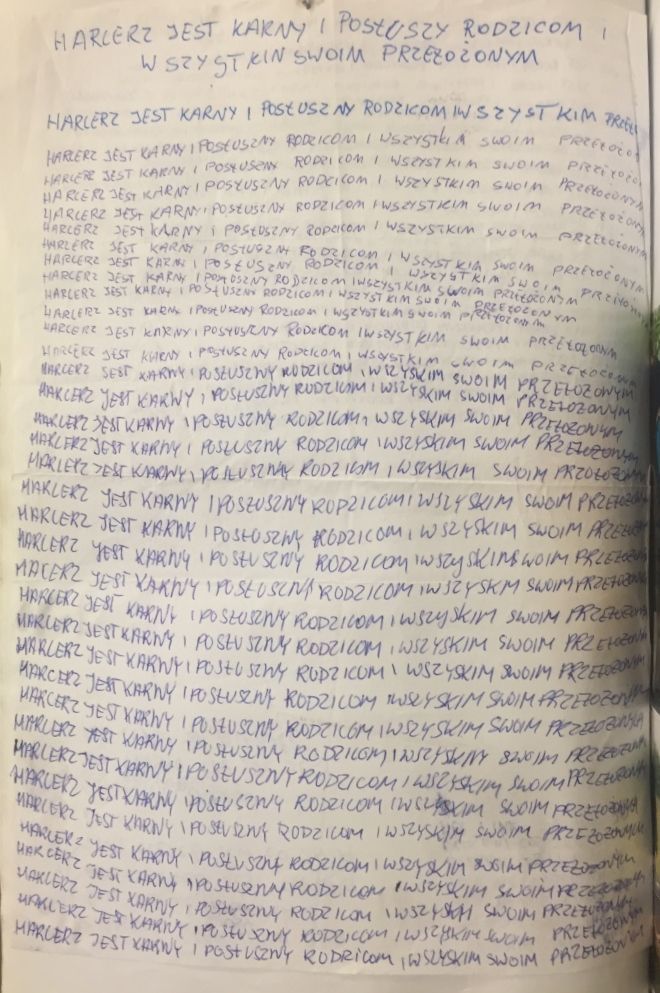 HARCERZ JEST KARNY I POSŁUSZY RODZICOM I
WSZYSTKIN SWOIM PRZEŁOŻONYM
HARCERZ JEST KARNY I POSŁUSZNY RODZICOM I WSZYSTKIM PRZEŁ
HARCERZ JEST KARNY I POSŁUSZNY RODZICOM I WSZYSTKIM SWOIM PRZEŁOŻO
HARCERZ JEST KARNY I POSŁUSZNY RODZICOM I WSZYSTKIM SWOIM PRZEŁOŻO
HARCERZ JEST KARNY I POSŁUSZNY RODZICOM I WSZYSTKIM SWOIM PRZEŁOŻONYM
HARCERZ JEST KARNY I POSŁUSZNY RODZICOM I WSZYSTKIM SWOIM PRZEŁOŻONYM
HARCERZ JEST KARNY I POSŁUSZNY RODZICOM I WSZYSTKIM SWOIM PRZEŁOŻONYM
HARCERZ JEST KARNY I POSŁUSZNY RODZICOM I WSZYSTKIM SWOIM PRZEŁOŻONYM
HARCERZ JEST KARNY I POSŁUSZNY RODZICOM I WSZYSTKIM SWOIM PRZEŁOŻO
HARCERZ JEST KARNY I POSŁUSZNY RODZICOM I WSZYSTKIM SWOIM PRZEŁOŻONYM
HARCERZ JEST KARNY I POSŁUSZNY RODZICOM I WSZYSTKIM SWOIM PRZEŁOŻONYM
HARCERZ JEST KARNY I POSŁUSZNY RODZICOM I WSZYSTKIM SWOIM PRZEŁOŻONYM
HARCERZ JEST KARNY I POSŁUSZNY RODZICOM I WSZYSTKIM SWOIM PRZEŁOŻONYM
HARCERZ JEST KARNY I POSŁUSZNY RODZICOM I WSZYSTKIM SWOIM PRZEŁOŻONYM
HARCERZ JEST KARNY I POSŁUSZNY RODZICOM I WSZYSKIM SWOIM PRZEŁOŻONYM
HARCERZ JEST KARNY I POSŁUSZNY RODZICOM I WSZYSKIM SWOIM PRZEŁOŻONYM
HARCERZ JEST KARNY I POSŁUSZNY RODZICOM I WSZYSKIM SWOIM PRZEŁOŻONYM
HARCERZ JEST KARNY I POSŁUSZNY RODZICOM I WSZYSKIM SWOIM PRZEŁOŻONYM
HARCERZ JEST KARNY I POSŁUSZNY RODZICOM I WSZYSKIM SWOIM PRZOŁOŻONYM
HARCERZ JEST KARNY I POSŁUSZNY RODZICOM I WSZYSKIM SWOIM PRZEŁOŻONYM
HARCERZ JEST KARNY I POSŁUSZNY RODZICOM I WSZYSKIM SWOIM PRZEŁOŻONYM
HARCERZ JEST KARNY I POSŁUSZNY RODZICOM I WSZYSKIM SWOIM PRZEŁOŻONYM
HACERZ JEST KARNY I POSŁUSZNY RODZICOM I WSZYSKIM SWOIM PRZEŁOŻONYM
HARCERZ JEST KARNY I POSŁUSZNY RODZICOM I WSZYSKIM SWOIM PRZEŁOŻONYM
HARCERZ JEST KARNY I POSŁUSZNY RODZICOM I WSZYSKIM SWOIM PRZEŁOŻONYM
HARCERZ JEST KARNY I POSŁUSZNY RODZICOM I WSZYSKIM SWOIM PRZEŁOŻONYM
HARCERZ JEST KARNY I POSŁUSZNY RODZICOM I WSZYSKIM SWOIM PRZEŁOŻONYM
HARCERZ JEST KARNY I POSŁUSZNY RODZICOM I WSZYSKIM SWOIM PRZEŁOŻONYM
HARCERZ JEST KARNY I POSŁUSZNY RODZICOM I WSZYSKNY SWOIM PRZEŁOŻONYM
HARCERZ JEST KARNY I POSŁUSZNY RODZICOM I WSZYSKIM SWOIM PRZEŁOŻONYM
HARCERZ JEST KARNY I POSŁUSZNY RODZICOM I WSZYSKIM SWOIM PRZEŁOŻONYM
HARCERZ JEST KARNY I POSŁUSZNY RODZICOM I WSZYSKIM SWOIM PRZEŁOŻONYM
HARCERZ JEST KARNY I POSŁUSZNY RODZICOM I WSZYSKIM SWOIM PRZEŁOŻONYM
HARCERZ JEST KARNY I POSŁUSZNY RODZICOM I WSZYSKIM SWOIM PRZEŁOŻONYM
HARCERZ JEST KARNY I POSŁUSZNY RODZICOM I WSZYSKIM SWOIM PRZEŁOŻONYM
HARCERZ JEST KARNY I POSŁUSZNY RODZICOM I WSZYSKIM SWOIM PRZEŁOŻONYM
HARCERZ JEST KARNY I POSŁUSZNY RODZICOM I WSZYSKIM SWOIM PRZEŁOŻONYM